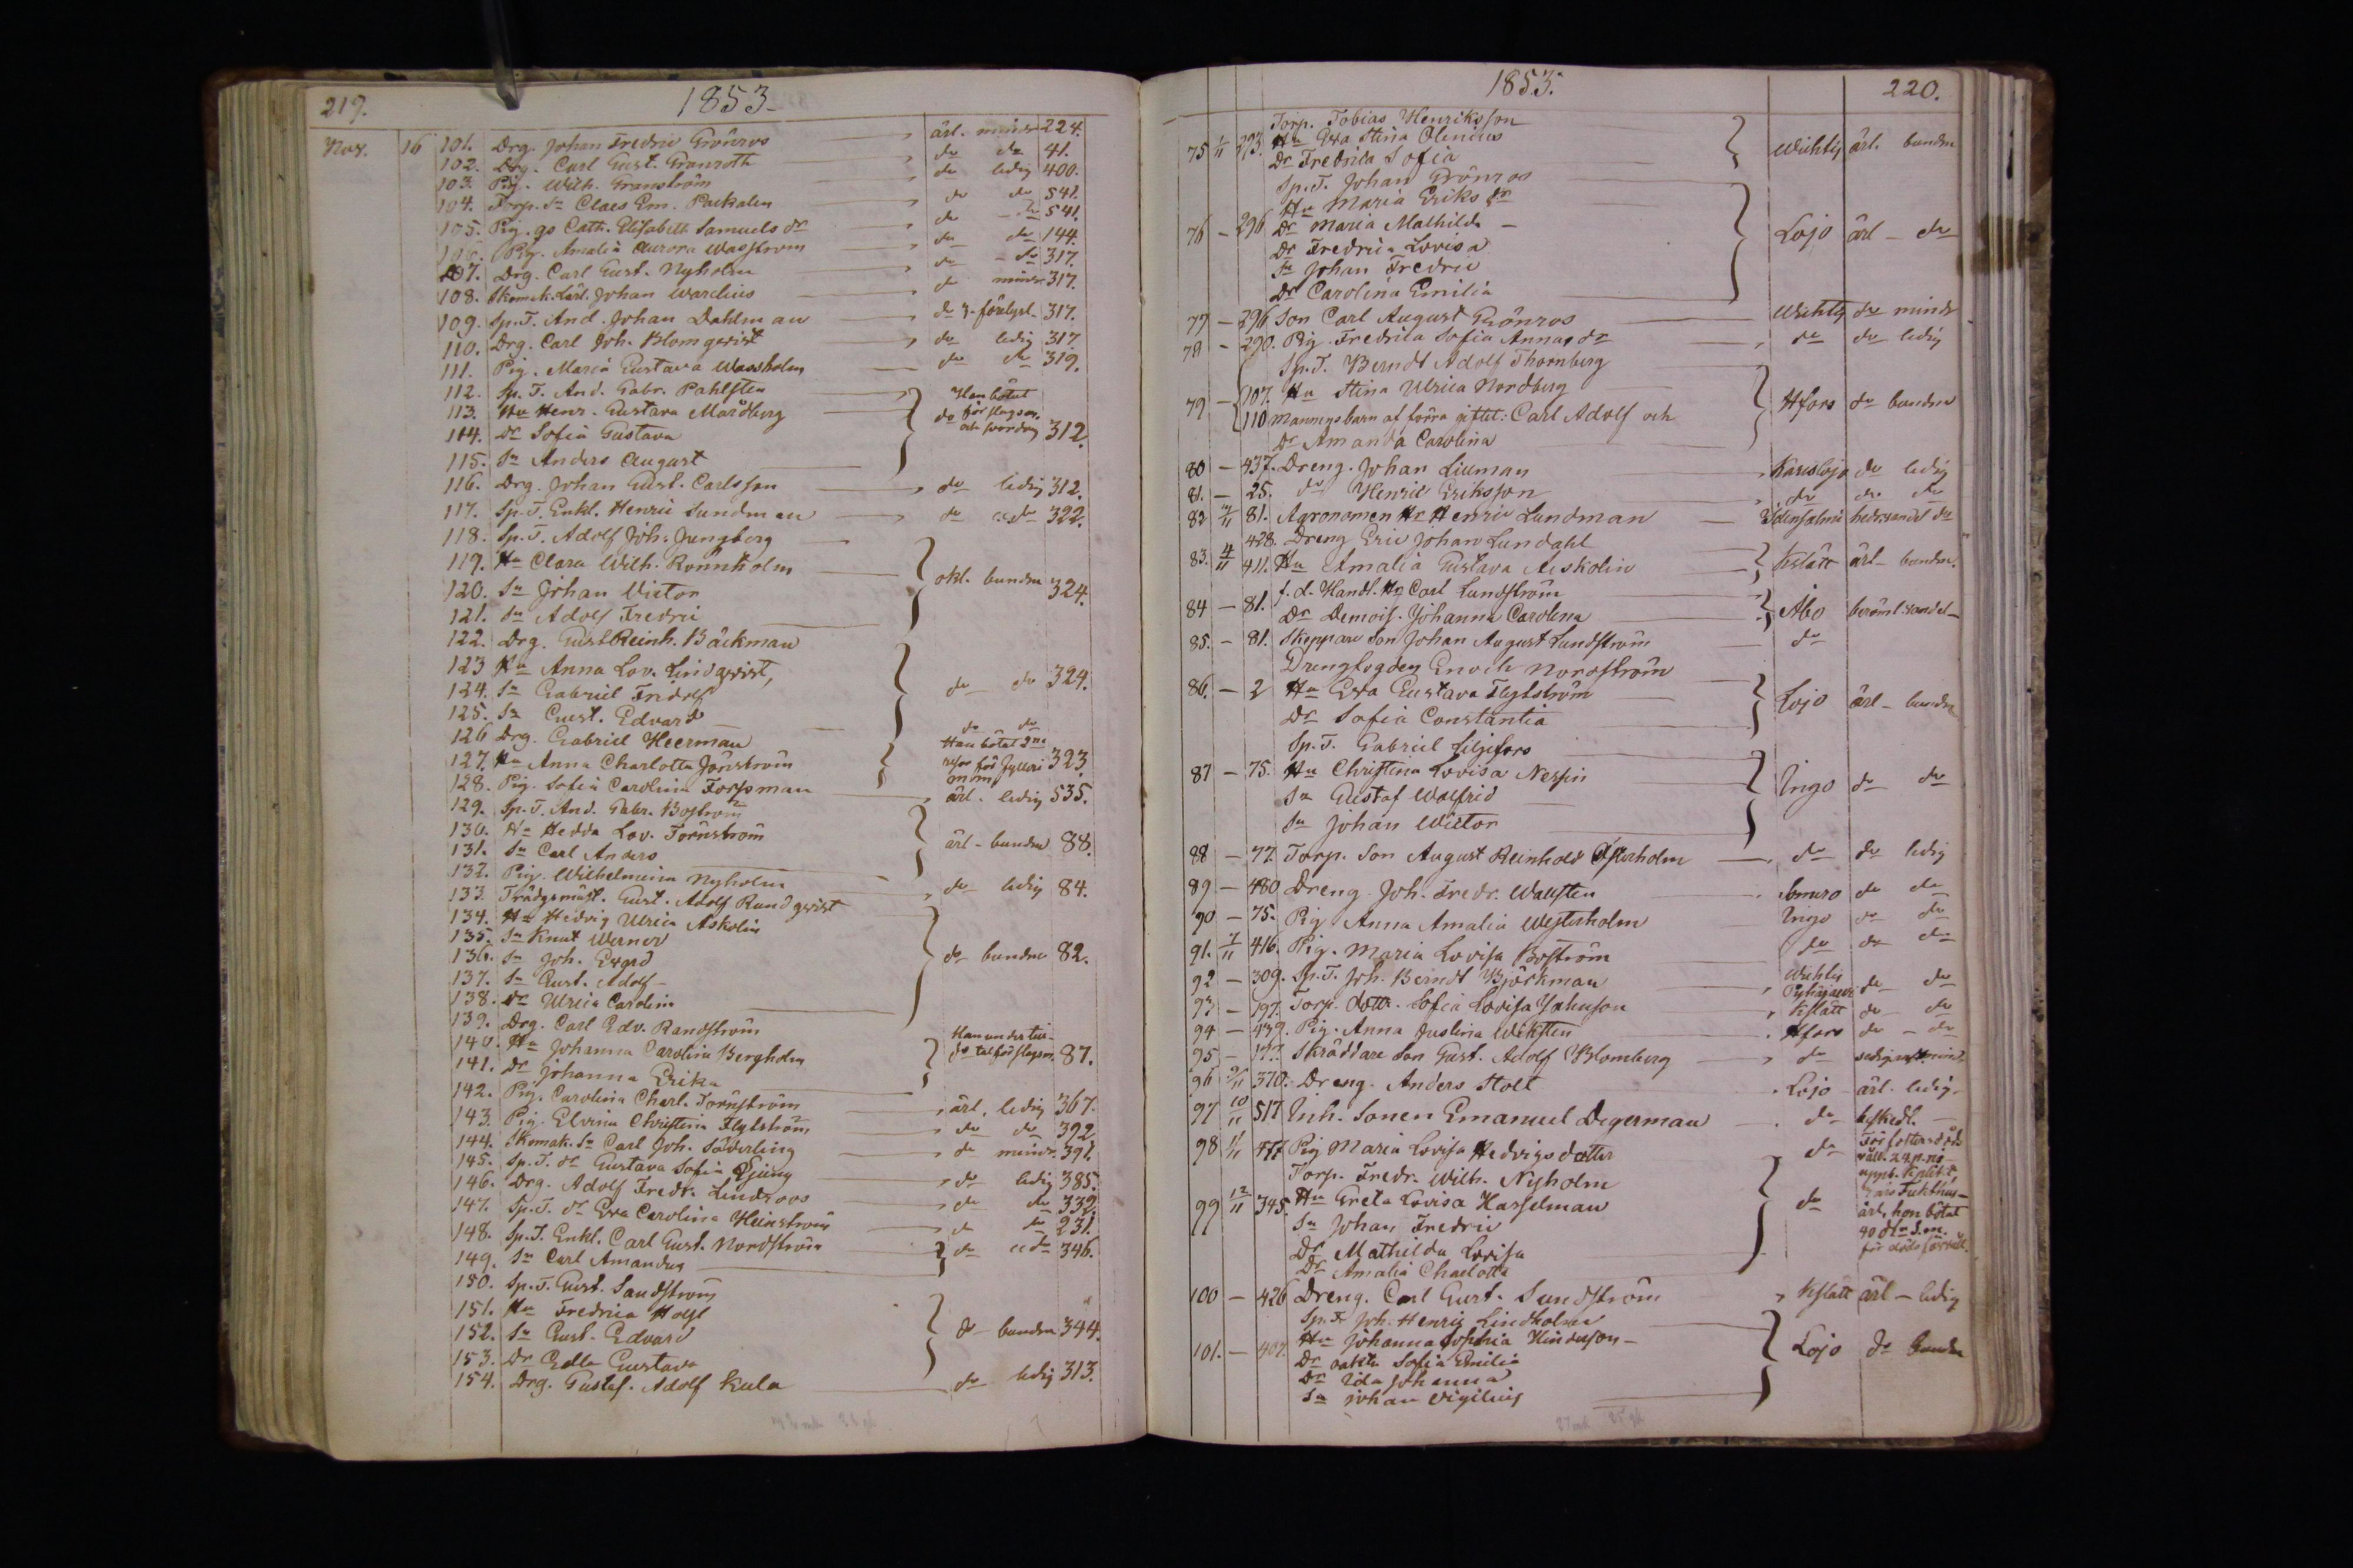 219. 1853.
Nov. 16 101. Drg. Johan Fredric Grönros ärl. mindr 224.
102. Drg. Carl Gust. Granroth do do 41.
103. Pig. Wilh. Granström do ledig 400.
104. Torp. Sn Claes Em. Packalen do do 541.
105. Pig. Cath. Elisabeth Samuels dr do do 541.
106. Pig. Amalia Aurora Wasström do do 144.
107. Drg. Carl Gust. Nyholm do do 317.
108. Skomak. Lärl. Johan Warelius do mindr 317.
109. Sp. T. And. Johan Dahlman do 317.
110. Drg. Carl Joh. Blomqvist do ledig 317.
111. Pig. Maria Gustava Wassholm do do 319.
112. Sp. T. And. Gabr. Pahlsten Han bötat
113. Hu Henr. Gustava Mardberg do för slagsm.
114. Dr Sofia Gustava och 312.
115. Sn Anders August
116. Drg. Johan Gust. Carlsson do ledig 312.
117. Sp. T. Enkl. Henric Sundman do do 322.
118. Sp. T. Adolf Joh. Jungberg
119. Hu Clara Wilh. Rönnholm okl. bunden 324.
120. Sn Johan Victor
121. Sn Adolf Fredric
122. Drg. Gust. Reinh. Bäckman
123 Hu Anna Lov. Lindqvist, do do 324.
124. Sn Gabriel Fridolf
125. Sn Gust. Edvard
126 Drg. Gabriel Heerman do do Han bötat 2ne
127. Hu Anna Charlotta Jönström för fylleri 323
128. Pig. Sofia Carolina Forssman ärl. ledig 535.
129. Sp. T. And. Gabr. Boström
130. Hu Hedda Lov. Törnström ärl - bunden 88.
131. Sn Carl Anders
132. Pig. Wilhelmina Nyholm do ledig 84.
133. Trädgsmäst. Gust. Adolf Rundqvist
134. Hu Hedvig Ulrica Askolin
135. Sn Knut Werner do bunden 82.
136. Sn Joh. Evard
137. Sn Gust. Adolf
138. Dr Ulrica Carolina
139. Drg. Carl Edv. Randström
140. Hu Johanna Carolina Bergholm 87.
141. Dr Johanna Erika
142. Pig. Carolina Charl. Törnström ärl. ledig 367.
143. Pig. Elvina Christina Flytström do do 392
144. Skomak. Sn Carl Joh. Söderling do mindr. 391.
145. Sp. T. dr Gustava Sofia Ljung do ledig 385.
146. Drg. Adolf Fredr. Lindroos do do 332.
147. Sp. T. dr Eva Carolina Heinström do do 231.
148. Sp. T. Enkl. Carl Gust. Nordström do do 346.
149. Sn Carl Amandus
150. Sp. T. Gust. Sandström
151. Hu Fredrica Holst do bunden 344.
152. Sn Gust. Edvard
153. Dr Edla Gustava
154. Drg. Gustaf. Adolf Kula do ledig 313.
1853. 220.
Torp. Tobias Henriksson
75 1/11 293. Hu Eva Stina Olenius Wichtis ärl. bunden
Dr Fredrica Sofia
Sp. T. Johan Grönros
Hu Maria Eriks dr
76 - 296 Dr Maria Mathilda - Lojo ärl - do
Dr Fredrica Lovisa
Sn Johan Fredric
Dr Carolina Emilia
77 - 296 Son Carl August Grönros Wichtis do mindr
78 - 290. Pig. Fredrica Sofia Annas dr do do ledig
Sp. T. Berndt Adolf Thornberg
79 - 107. Hu Stina Ulrica Nordberg Hfors do bunden
110 Mannens barn af förra giftet: Carl Adolf och
Dr Amanda Carolina
80 - 437. Dreng. Johan Liuman Karislojo do ledig
81. - 25. do Henric Eriksson do do do
82 81. Agronomen Hr Henric Lundman Idensalmi do
428. Dreng Eric Johan Lundahl
83. 4/11 411. Hu Amalia Gustava Aeskolin Kslätt ärl - bunden.
84 - 81. f. d. Handl. Hr Carl Lundström Åbo
Dr Demois. Johanna Carolina
85. - 81. Skeppare Son Johan August Lundström do
Drengfogden Enoch Nordström
86. - 2 Hu Eva Gustava Flytström Lojo ärl - bunden
Dr Sofia Constantia
Sp. T. Gabriel Liljefors
87 - 75. Hu Christina Lovisa Nessin Ingo do do
Sn Gustaf Walfrid
Sn Johan Wictor
88 - 77. Torp. Son August Reinhold Österholm do do ledig
89 - 480 Dreng. Joh. Fredr. Wallsten Somero do do
90 - 75. Pig Anna Amalia Westerholm Ingo do do
91. 7/11 416. Pig. Maria Lovisa Boström do do do
92 - 309. Sp. T. Joh. Berndt Björkman Wichtis Pyhäjärvi do do
93 - 197. Torp. dottr. Sofia Lovisa Johnsson Kslätt do do
94 - 439. Pig. Anna Justina Wiksten Hfors do - do
95 - Skräddare Son Gust. Adolf Blomberg do
96 9/11 370. Dreng. Anders Holt Lojo - ärl. ledig.
97 10/11 517 Inh. Sonen Emanuel Degerman do
98 11/11 Pig Maria Lovisa Hedvigsdotter do
Torp. Fredr. Wilh. Nyholm
99 12/11 345. Hu Greta Lovisa Hasselman do ärl, hon bötat
Sn Johan Fredric 40
Dr Mathilda Lovisa
Dr Amalia Charlotta
100 - 426 Dreng. Carl Gust. Sundström Kslätt ärl - ledig
Sp. T. Joh. Henric Lindholm
101. - 407. Hu Johanna Sophia Hindrsson - Lojo do bunden
Dr Sofia Emilia
Dr Ida Johanna
Sn Johan Vigilius